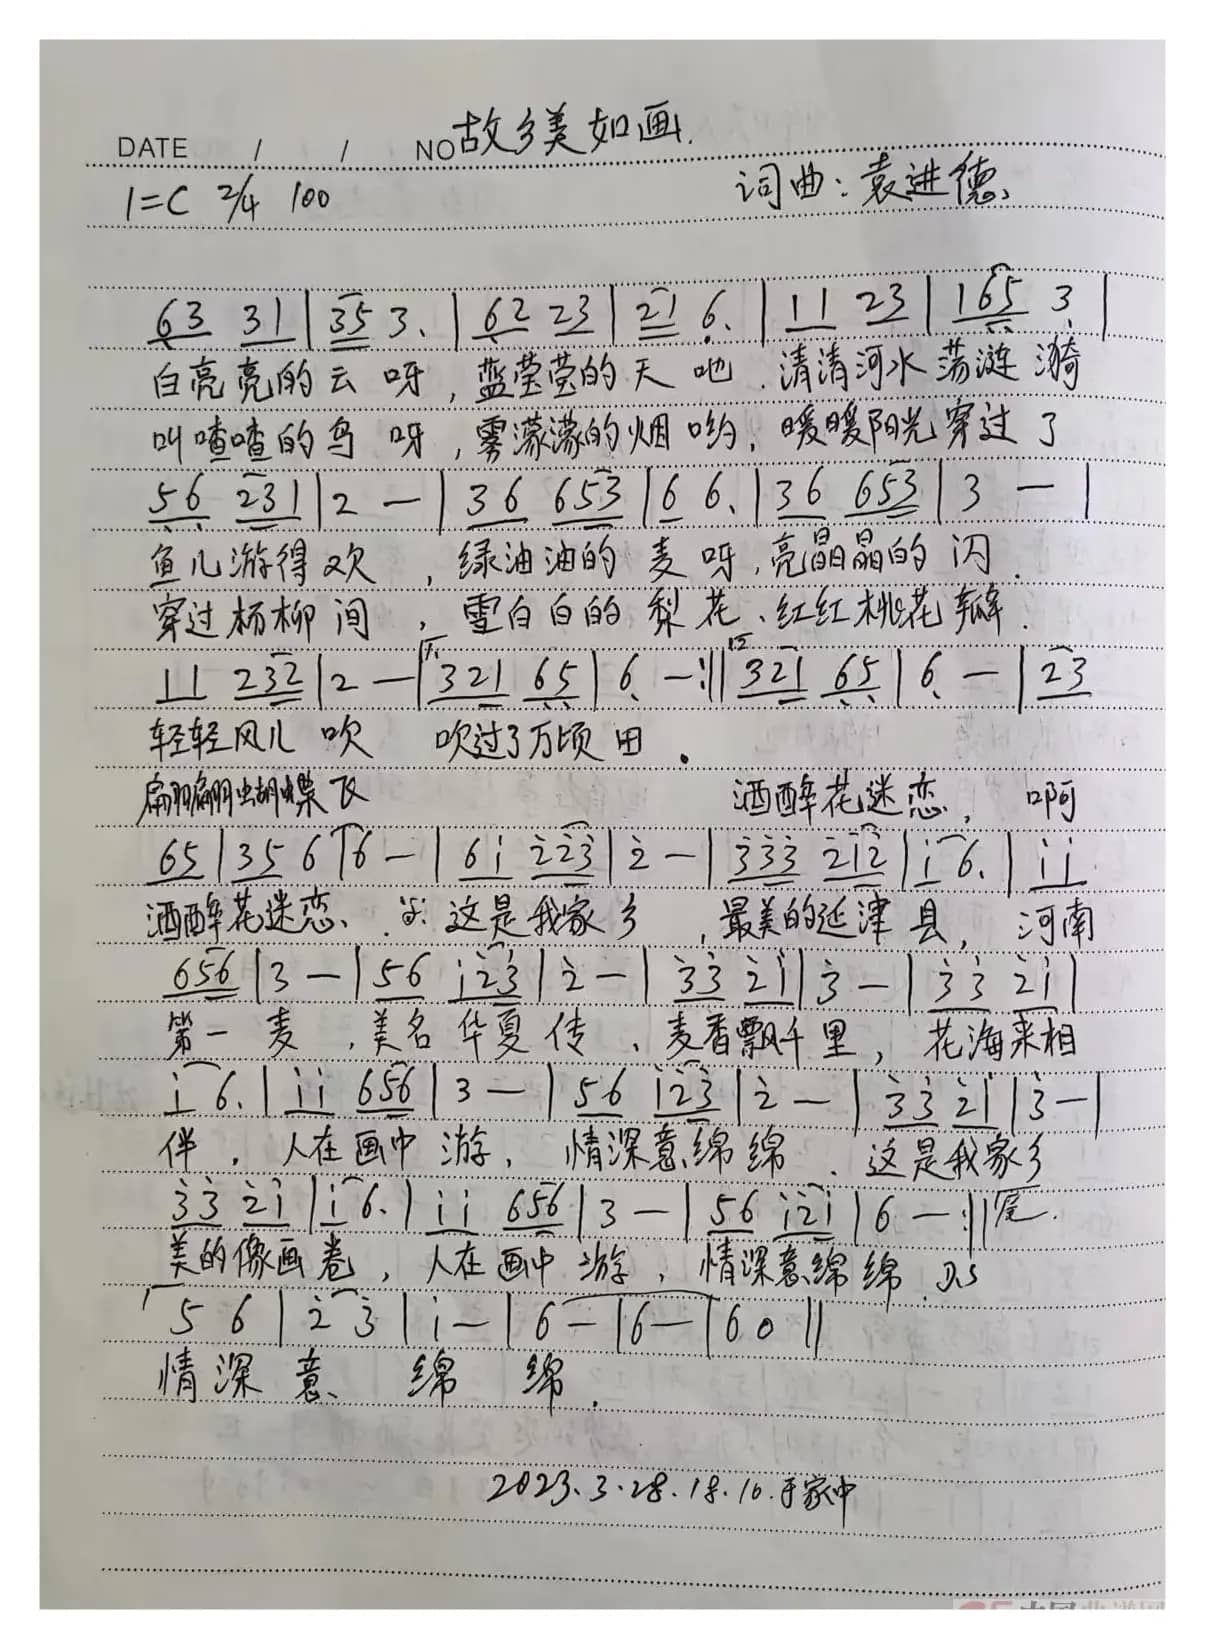 故乡美如画.
DATE / / NO
1=C 2/4 100 词曲:袁进德
63 31 | 35 3. | 62 23 | 21 6. | 11 23 | 165 3 |
白亮亮的云呀,蓝莹莹的天吔.清清河水荡涟漪
叫喳喳的鸟呀,雾濛濛的烟哟,暖暖阳光穿过了
56 231 | 2 — | 36 653 | 6 6. | 36 653 | 3 — |
鱼儿游得欢,绿油油的麦呀,亮晶晶的闪.
穿过杨柳间,雪白白的梨花、红红桃花瓣.
11 232 | 2 — | 321 65 | 6 — :|| 321 65 | 6 — | 23
轻轻风儿吹 吹过了万顷田.
翩翩蝴蝶飞 洒醉花迷恋,啊
65 | 35 6 | 6 — | 6i 223 | 2 — | 333 212 | i 6. | ii
洒醉花迷恋、这是我家乡,最美的延津县,河南
656 | 3 — | 56 i23 | 2 — | 33 2i | 3 — | 33 2i |
第一麦,美名华夏传、麦香飘千里,花海来相
i 6. | ii 656 | 3 — | 56 i23 | 2 — | 33 2i | 3 — |
伴.人在画中游,情深意绵绵.这是我家乡
33 2i | i 6. | ii 656 | 3 — | 56 i2i | 6 — :|| 尾.
美的像画卷,人在画中游,情深意绵绵. D.S
5 6 | 2 3 | i — | 6 — | 6 — | 6 0 ||
情深意、绵绵.
2023.3.28.18.10.于家中